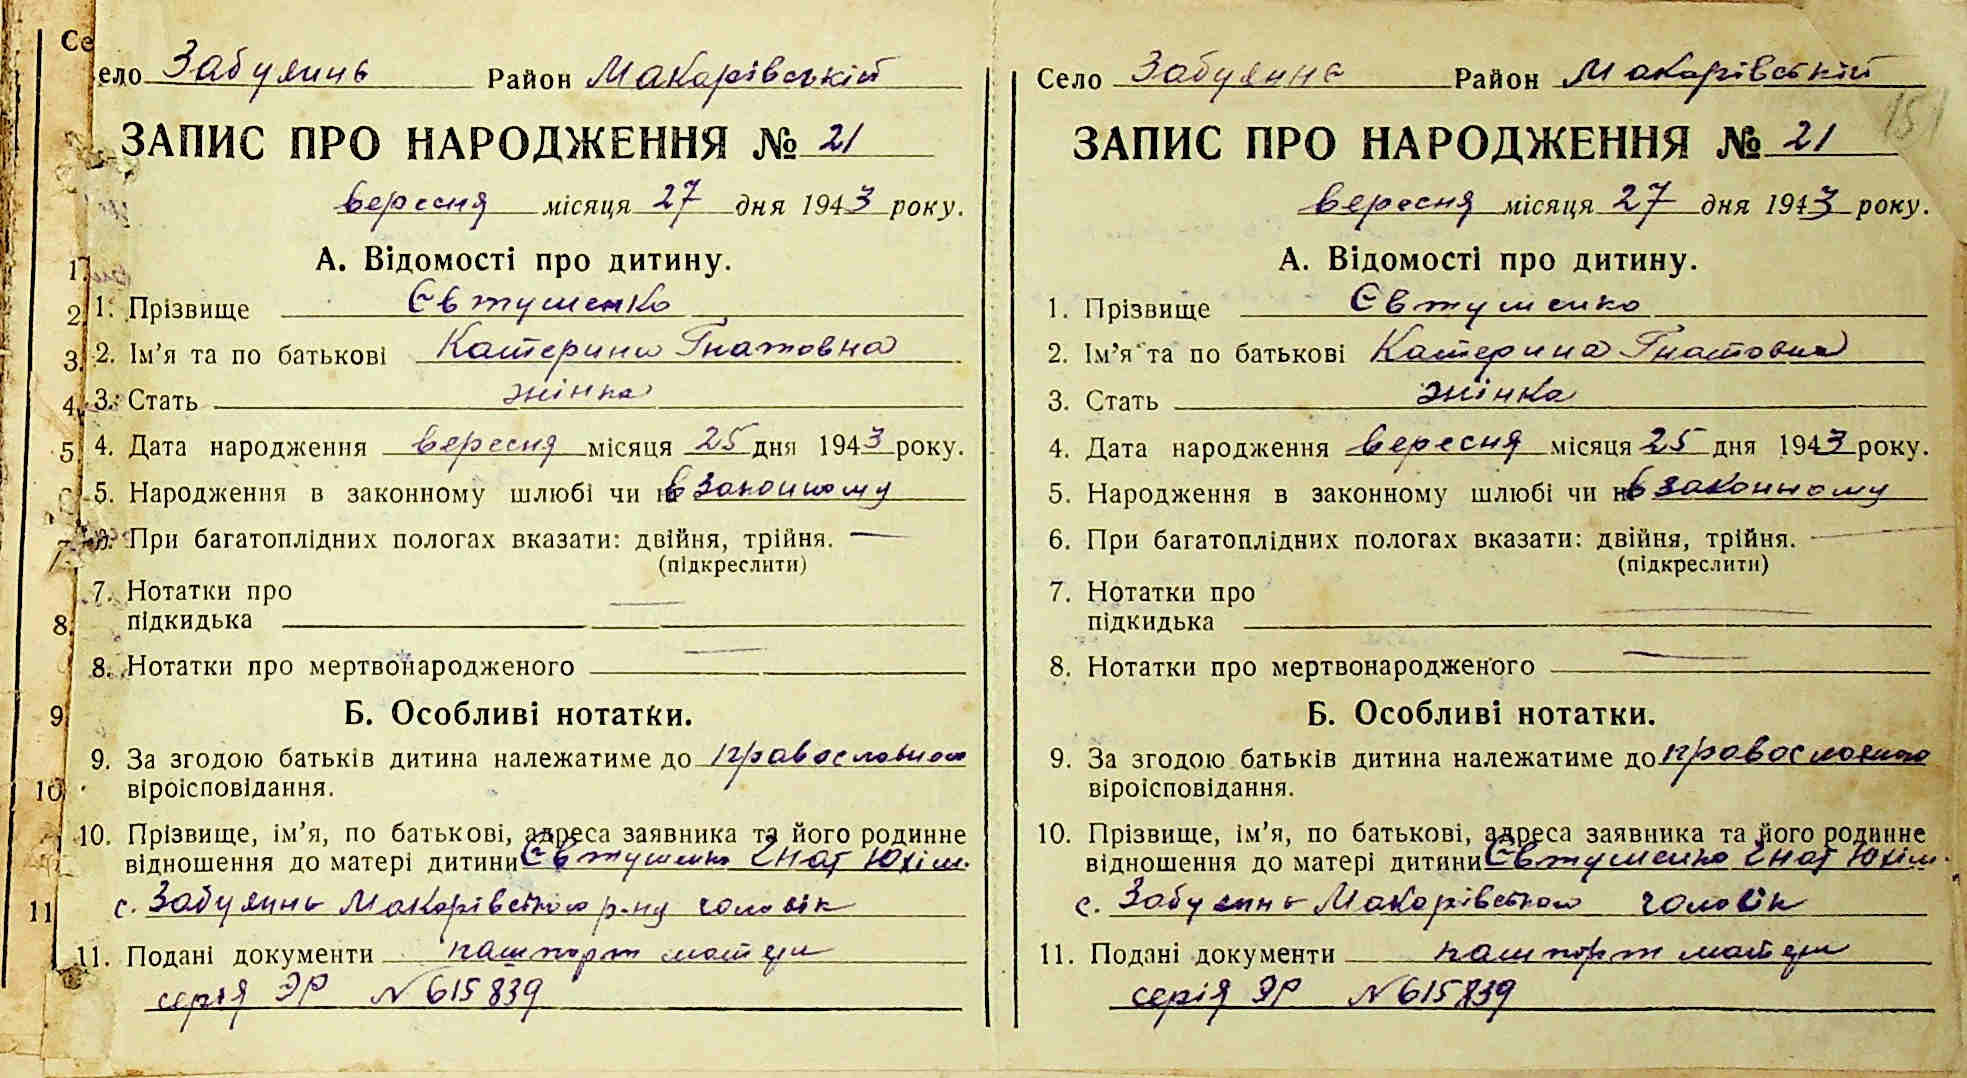 Се
ело Забуянь Район Макарівській
ЗАПИС ПРО НАРОДЖЕННЯ № 21
вересня місяця 27 дня 1943 року.
А. Відомості про дитину.
1. Прізвище Євтушенко
2. Ім’я та по батькові Катерина Гнатовна
3. Стать жінка
4. Дата народження вересня місяця 25 дня 1943 року.
5. Народження в законному шлюбі чи в законному
6. При багатоплідних пологах вказати: двійня, трійня. —
(підкреслити)
7. Нотатки про
підкидька —
8. Нотатки про мертвонародженого —
Б. Особливі нотатки.
9. За згодою батьків дитина належатиме до православного
віроісповідання.
10. Прізвище, ім’я, по батькові, адреса заявника та його родинне
відношення до матері дитини Євтушенко Гнат Юхім.
с. Забуянь Макарівського р-ну чоловік
11. Подані документи пашпорт матери
серія ЭР № 615839
1
2
3.
4.
5
7
8.
9
10
11
Село Забуяння Район Макарівській
151
ЗАПИС ПРО НАРОДЖЕННЯ № 21
вересня місяця 27 дня 1943 року.
А. Відомості про дитину.
1. Прізвище Євтушенко
2. Ім’я та по батькові Катерина Гнатовна
3. Стать жінка
4. Дата народження вересня місяця 25 дня 1943 року.
5. Народження в законному шлюбі чи в законному
6. При багатоплідних пологах вказати: двійня, трійня. —
(підкреслити)
7. Нотатки про
підкидька —
8. Нотатки про мертвонародженого —
Б. Особливі нотатки.
9. За згодою батьків дитина належатиме до православного
віроісповідання.
10. Прізвище, ім’я, по батькові, адреса заявника та його родинне
відношення до матері дитини Євтушенко Гнат Юхім.
с. Забуянь Макарівського чоловік
11. Подані документи пашпорт матери
серія ЭР № 615839